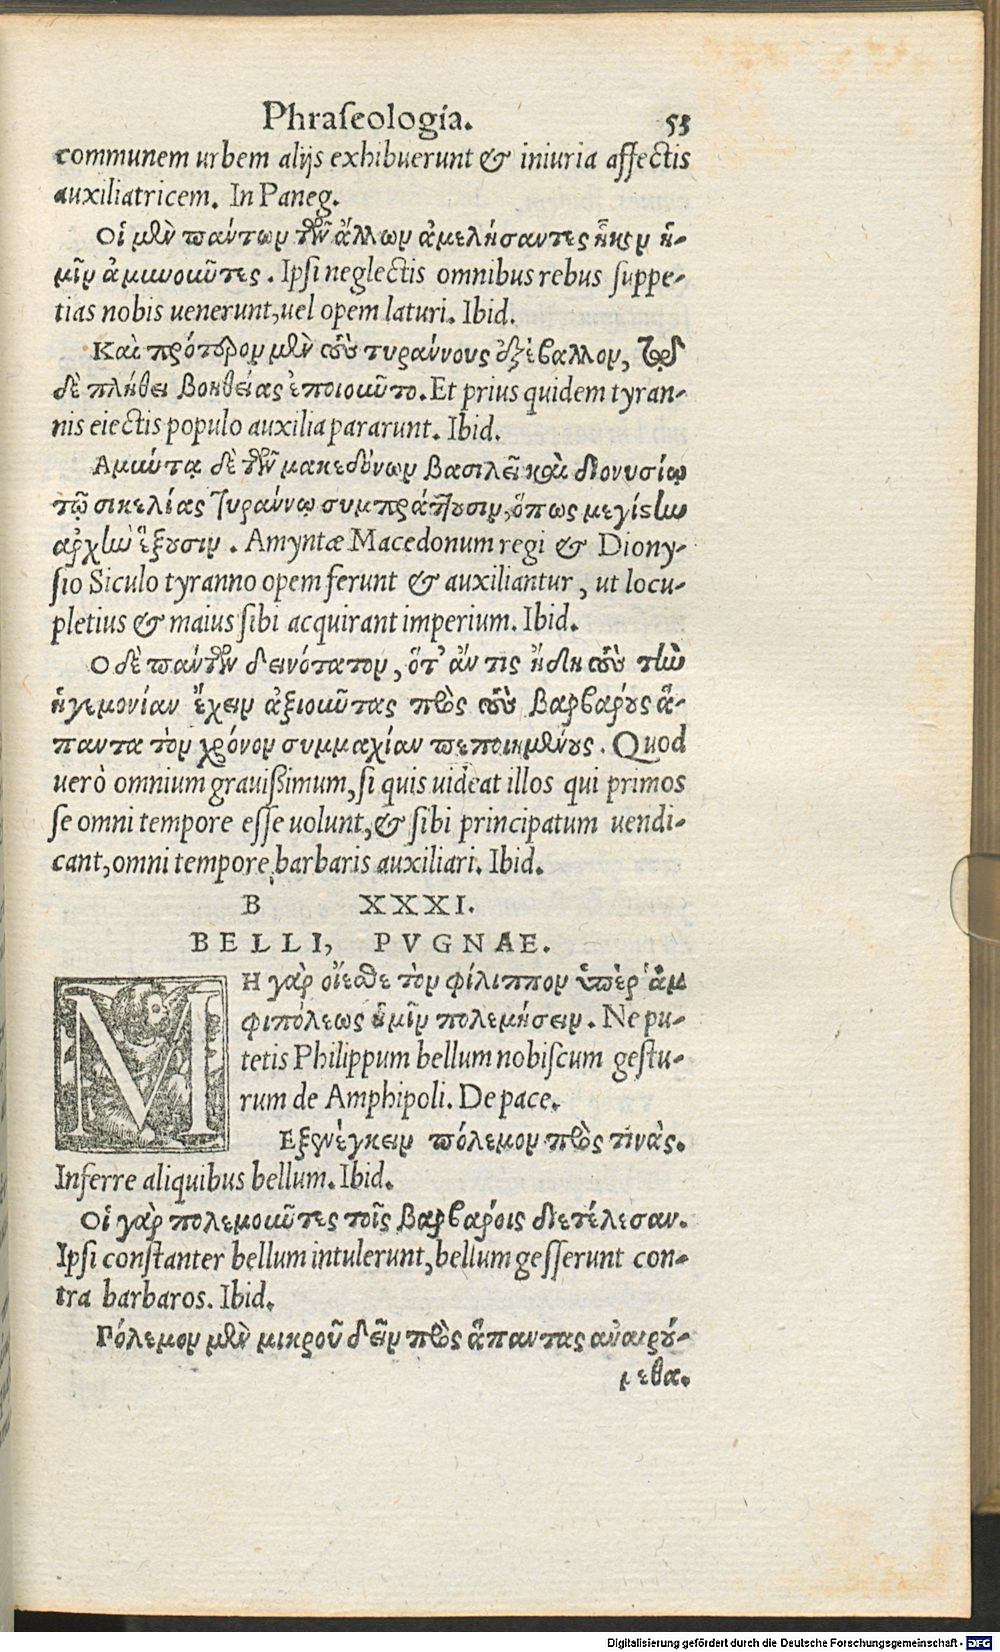 Phraſeologia. 53
communem urbem alijs exhibuerunt & iniuria affectis
auxiliatricem. In Paneg.
Οἱ μὲν πάντων τῶν ἄλλων ἀμελήσαντες ἧκον ἡ-
μῖν ἀμυνοῦντες. Ipſi neglectis omnibus rebus ſuppe-
tias nobis uenerunt, uel opem laturi. Ibid.
Καὶ πρότερον μὲν τοὺς τυράννους ἐξέβαλλον, τῷ
δὲ πλήθει βοηθείας ἐποιοῦντο. Et prius quidem tyran-
nis eiectis populo auxilia pararunt. Ibid.
Αμύντᾳ δὲ τῶν μακεδόνων βασιλεῖ καὶ διονυσίῳ
τῷ σικελίας τυράννῳ συμπράττουσιν, ὅπως μεγίστην
ἀρχὴν ἕξουσιν. Amyntæ Macedonum regi & Diony-
ſio Siculo tyranno opem ferunt & auxiliantur, ut locu-
pletius & maius ſibi acquirant imperium. Ibid.
Ο δὲ πάντων δεινότατον, ὅτ' ἄν τις ἤδη τοὺς τὴν
ἡγεμονίαν ἔχειν ἀξιοῦντας πρὸς τοὺς βαρβάρους ἅ-
παντα τὸν χρόνον συμμαχίαν πεποιημένους. Quod
uerò omnium grauißimum, ſi quis uideat illos qui primos
ſe omni tempore eſſe uolunt, & ſibi principatum uendi-
cant, omni tempore barbaris auxiliari. Ibid.
B XXXI.
BELLI, PVGNAE.
ΜΗ γὰρ οἴεσθε τὸν φίλιππον ὑπὲρ ἀμ
φιπόλεως ἡμῖν πολεμήσειν. Ne pu-
tetis Philippum bellum nobiſcum geſtu-
rum de Amphipoli. De pace.
Εξενέγκειν πόλεμον πρὸς τινάς.
Inferre aliquibus bellum. Ibid.
Οἱ γὰρ πολεμοῦντες τοῖς βαρβάροις διετέλεσαν.
Ipſi conſtanter bellum intulerunt, bellum geſſerunt con-
tra barbaros. Ibid.
Πόλεμον μὲν μικροῦ δεῖν πρὸς ἅπαντας αναιρού-
μεθα.
Digitalisierung gefördert durch die Deutsche Forschungsgemeinschaft - DFG